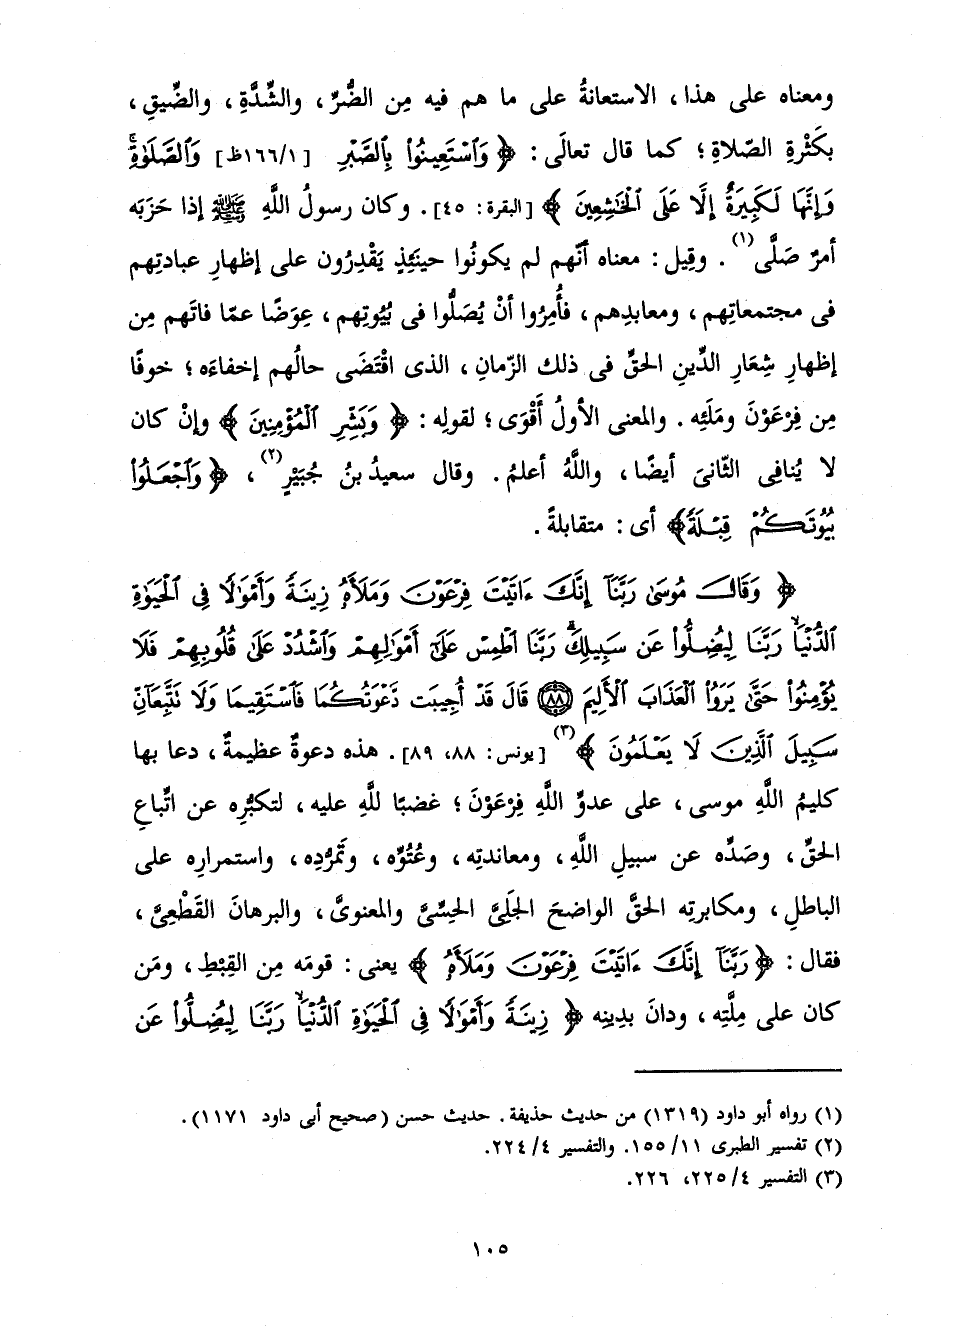 ومعناه على هذا، الاستعانةُ على ما هم فيه مِن الضُّرِّ، والشِّدَّةِ، والضِّيقِ،
بكَثْرةِ الصّلاةِ؛ كما قال تعالَى: ﴿ وَٱسْتَعِينُوا۟ بِٱلصَّبْرِ [١٦٦/١ظ] وَٱلصَّلَوٰةِۚ
وَإِنَّهَا لَكَبِيرَةٌ إِلَّا عَلَى ٱلْخَـٰشِعِينَ ﴾ [البقرة: ٤٥]. وكان رسولُ اللَّهِ ﷺ إذا حَزَبَه
أمرٌ صَلَّى(١). وقِيل: معناه أنّهم لم يكونُوا حينَئِذٍ يَقْدِرُون على إظهارِ عبادتِهم
فى مجتمعاتِهم، ومعابدِهم، فأُمِرُوا أنْ يُصَلُّوا فى بُيُوتِهم، عِوَضًا عمّا فاتَهم مِن
إظهارِ شِعَارِ الدِّينِ الحقِّ فى ذلك الزّمانِ، الذى اقْتَضَى حالُهم إخفاءَه؛ خوفًا
مِن فِرْعَوْنَ ومَلَئِه. والمعنى الأولُ أَقْوَى؛ لقولِه: ﴿ وَبَشِّرِ ٱلْمُؤْمِنِينَ ﴾ وإنْ كان
لا يُنافِى الثّانىَ أيضًا، واللَّهُ أعلمُ. وقال سعيدُ بنُ جُبَيْرٍ(٢)، ﴿ وَٱجْعَلُوا۟
بُيُوتَكُمْ قِبْلَةً﴾ أى: متقابلةً.
﴿ وَقَالَ مُوسَىٰ رَبَّنَآ إِنَّكَ ءَاتَيْتَ فِرْعَوْنَ وَمَلَأَهُۥ زِينَةً وَأَمْوَٰلًا فِى ٱلْحَيَوٰةِ
ٱلدُّنْيَا رَبَّنَا لِيُضِلُّوا۟ عَن سَبِيلِكَۖ رَبَّنَا ٱطْمِسْ عَلَىٰٓ أَمْوَٰلِهِمْ وَٱشْدُدْ عَلَىٰ قُلُوبِهِمْ فَلَا
يُؤْمِنُوا۟ حَتَّىٰ يَرَوُا۟ ٱلْعَذَابَ ٱلْأَلِيمَ ٨٨ قَالَ قَدْ أُجِيبَت دَّعْوَتُكُمَا فَٱسْتَقِيمَا وَلَا نَتَّبِعَآنِّ
سَبِيلَ ٱلَّذِينَ لَا يَعْلَمُونَ ﴾(٣) [يونس: ٨٨، ٨٩]. هذه دعوةٌ عظيمةٌ، دعا بها
كليمُ اللَّهِ موسى، على عدوِّ اللَّهِ فِرْعَوْنَ؛ غضبًا للَّهِ عليه، لتكبُّرِه عن اتِّباعِ
الحقِّ، وصَدِّه عن سبيلِ اللَّهِ، ومعاندتِه، وعُتُوِّه، وتَمَرُّدِه، واستمرارِه على
الباطلِ، ومكابرتِه الحقَّ الواضحَ الجَلِىَّ الحِسِّىَّ والمعنوىَّ، والبرهانَ القَطْعِىَّ،
فقال: ﴿رَبَّنَآ إِنَّكَ ءَاتَيْتَ فِرْعَوْنَ وَمَلَأَهُۥ ﴾ يعنى: قومَه مِن القِبْطِ، ومَن
كان على مِلَّتِه، ودانَ بدِينِه ﴿ زِينَةً وَأَمْوَٰلًا فِى ٱلْحَيَوٰةِ ٱلدُّنْيَا رَبَّنَا لِيُضِلُّوا۟ عَن
(١) رواه أبو داود (١٣١٩) من حديث حذيفة. حديث حسن (صحيح أبى داود ١١٧١).
(٢) تفسير الطبرى ١١/ ١٥٥. والتفسير ٤/ ٢٢٤.
(٣) التفسير ٤/ ٢٢٥، ٢٢٦.
١٠٥